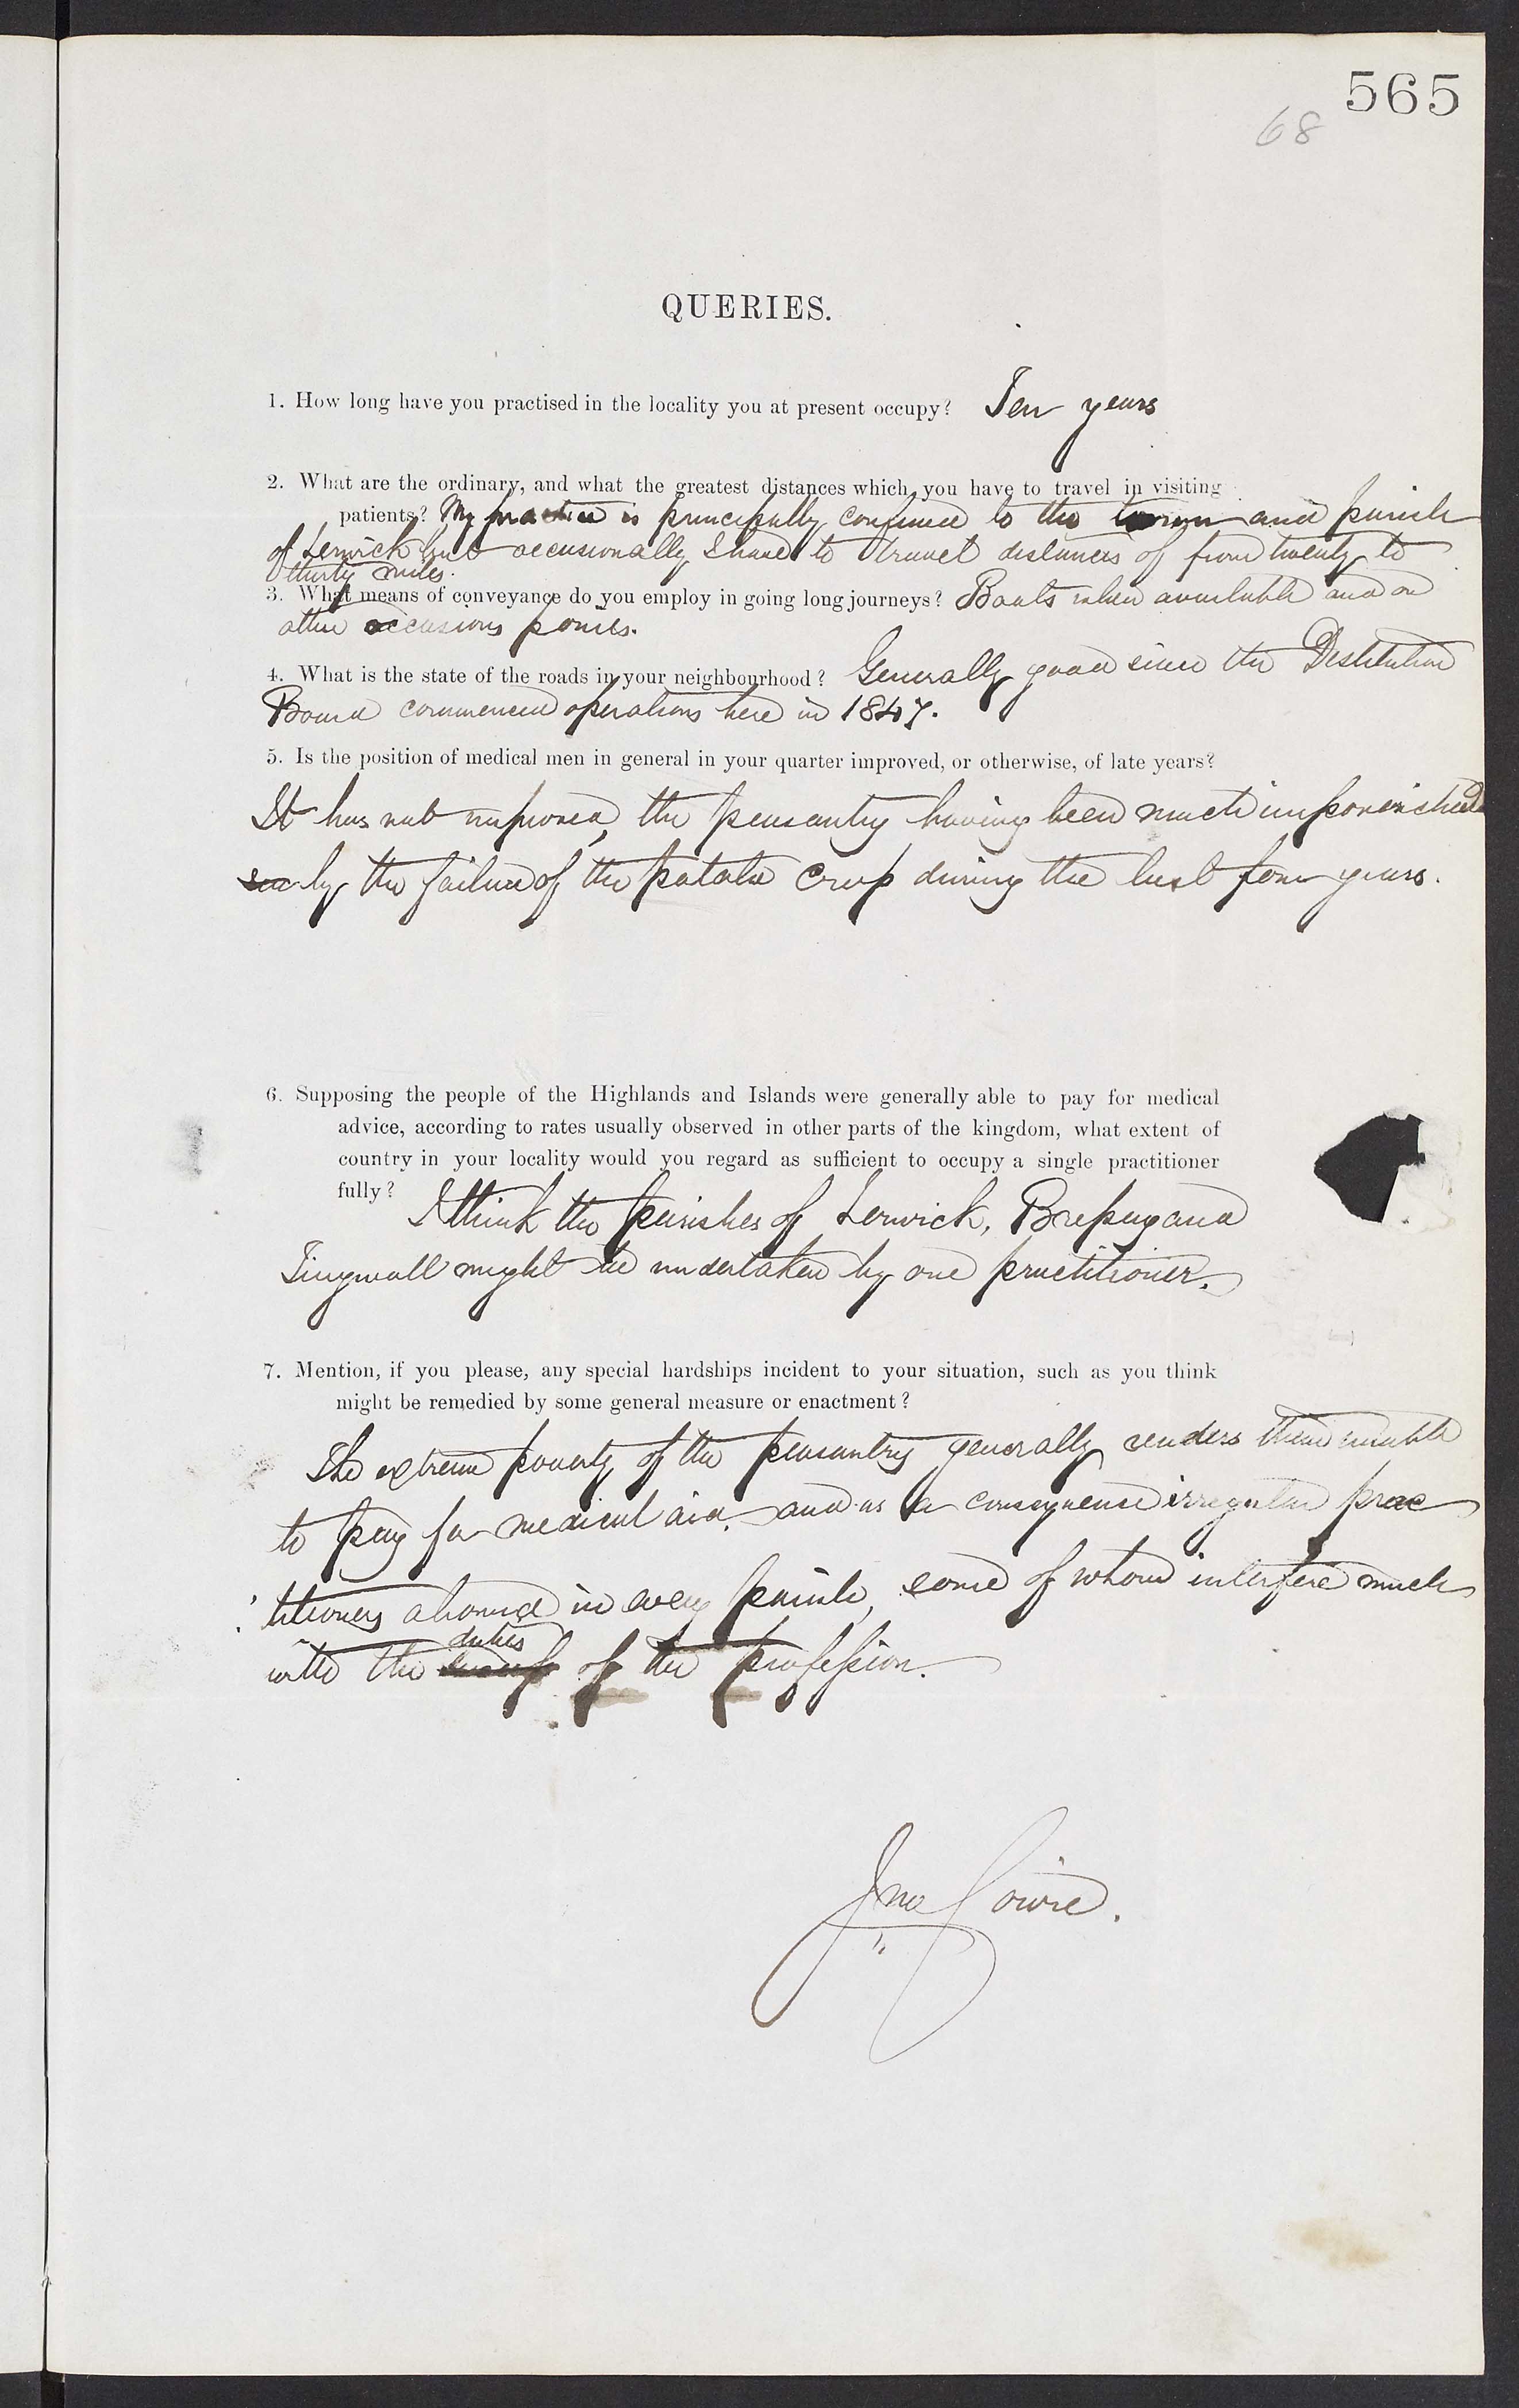 565
68
QUERIES.
1. How long have you practised in the locality you at present occupy? Ten years
2. What are the ordinary, and what the greatest distances which you have to travel in visiting
patients? My practice is principally confined to the town and parish
of Lerwick but occasionally I have to travel distances of from twenty to
thirty miles.
3. What means of conveyance do you employ in going long journeys? Boats when available and on
other occasions ponies.
4. What is the state of the roads in your neighbourhood? Generally good since the Destitution
Board commenced operations here in 1847.
5. Is the position of medical men in general in your quarter improved, or otherwise, of late years?
It has not improved, the peasantry having been much impoverished
by the failure of the potatoe crop during the last four years.
6. Supposing the people of the Highlands and Islands were generally able to pay for medical
advice, according to rates usually observed in other parts of the kingdom, what extent of
country in your locality would you regard as sufficient to occupy a single practitioner
fully?
I think the parishes of Lerwick, Bressay and
Tingwall might be undertaken by one practitioner.
7. Mention, if you please, any special hardships incident to your situation, such as you think
might be remedied by some general measure or enactment?
The extreme poverty of the peasantry generally renders them unable
to pay for medical aid, and as a consequence irregular prac
:titioners abound in every parish, some of whom interfere much
duties
with the of the profession.
Jno Cowie.